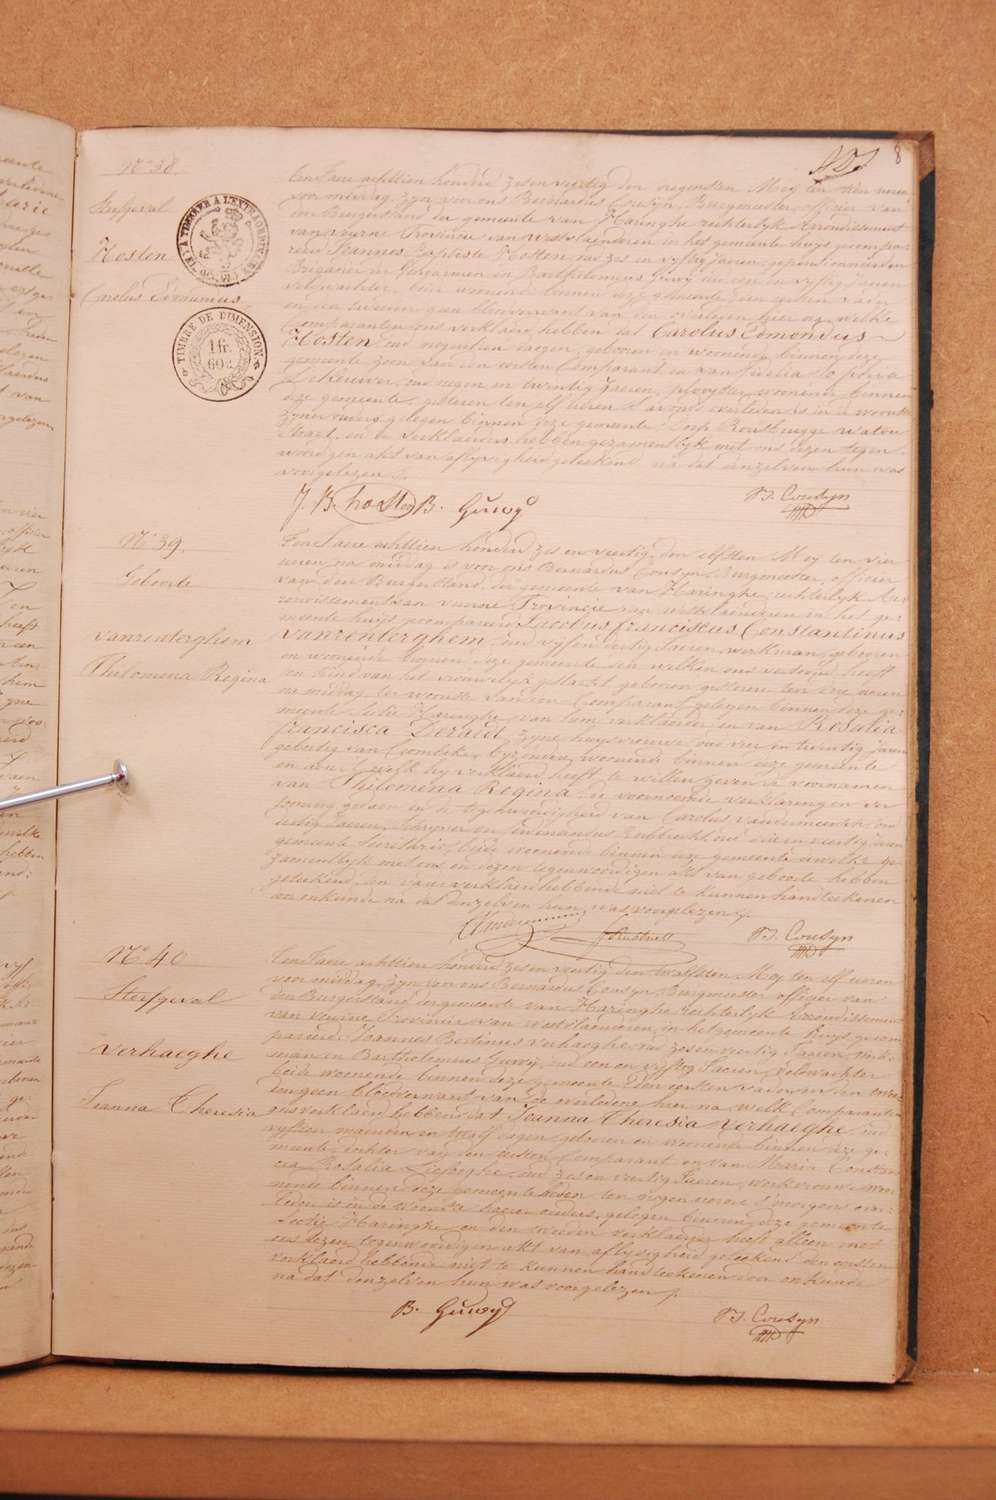 8
N° 38.
Sterfgeval
Hosten
Carolus Edmondus
TIMBRE DE DIMENSION
1 fr.
60 c.
Een Jaere achttien honderd zes en veertig den negensten Mey ten tien uren
voor middag, zyn voor ons Bernardus Cousyn Burgmeester, officier van
den Burgerstand der gemeente van Haringhe rechterlyk Arrondissement
van veurne Provincie van West vlaenderen in het gemeente huys gecompa-
reerd Joannes Baptiste Hosten oud zes en vyftig jaeren, gepensionneerden
en Bartholomeus Guwy oud een en vyftig jaeren
veldwachter, beide woonende binnen deze gemeente den eersten vader
en den tweeden geen bloedverwant van den overleden hier na, welke
comparanten ons verklaerd hebben dat Carolus Edmondus
Hosten oud negentien dagen, geboren en woonende binnen deze
gemeente zoon van den eersten Comparant en van Julia Sophia
oud negen en twintig Jaeren, woonende binnen
deze gemeente, gisteren ten elf uren s'avonds overleden is in de woonste
zyner ouders gelegen binnen deze gemeente, Dorp Rousbrugge waton
Straet, en de verklaerders hebben gezamentlyk met ons dezen tegen-
woordigen akt van aflyvigheid geteekend na dat denzelven hun was
voorgelezen.
J. B. hosten B. Guwy B. J. Cousyn
N° 39.
Geboorte
Vanrenterghem
Philomena Regina
Een Jaere achttien honderd zes en veertig den elfsten Mey ten vier
uren na middag is voor ons Bernardus Cousyn, Burgmeester, officier
van den Burgerstand der gemeente van Haringhe rechterlyk Ar-
rondissement van veurne Provincie van West vlaenderen in het ge-
meente huys gecompareerd Jacobus franciscus Constantinus
Vanrenterghem oud vyf en dertig Jaeren, werkman, geboren
en woonende binnen deze gemeente den welken ons vertoond heeft
een kind van het vrouwelyk geslacht geboren gisteren ten dry uren
na middag ter woonste van den Comparant gelegen binnen deze ge-
meente Sectie Haringhe, van hem verklaerder en van Rosalia
francisca Deraedt, zyne huysvrouwe, oud vier en twintig jaeren
gebortig van byzondere, woonende binnen deze gemeente
en aen t'welk hy verklaerd heeft te willen geven de voornamen
van Philomena Regina de voornoemde verklaringen en ver-
tooning gedaen in tegenwoordigheid van Carolus Vandermeersch, oud
dertig Jaeren, Schryver en Ferdinandus oud een en veertig jaeren
gemeente Secretaris, beide woonende binnen deze gemeente dewelke ge-
zamentlyk met ons dezen tegenwoordigen akt van geboorte hebben
geteekend, den vader verklaerd hebbende niet te kunnen handteekenen
uit onkunde na dat denzelven hun was voorgelezen.
B. J. Cousyn
N° 40
Sterfgeval
Verhaeghe
Joanna Theresia
Een Jaere achttien honderd zes en veertig den twaelfsten Mey ten elf uren
voor middag, zyn voor ons Bernardus Cousyn, Burgmeester officier van
den Burgerstand der gemeente van Haringhe rechterlyk Arrondissement
van veurne Provincie van West vlaenderen, in het gemeente huys gecom-
pareerd Joannes Bertinus Verhaeghe, oud zes en veertig Jaeren, werk-
man en Bartholomeus Guwy, oud een en vyftig Jaeren, veldwachter
beide woonende binnen deze gemeente, den eersten vader en den twee-
den geen bloedverwant van de overledene hier na, welk Comparanten
ons verklaerd hebben dat Joanna Theresia Verhaeghe oud
vyftien maenden en twalf dagen, geboren en woonende binnen deze ge-
meente, dochter van den eersten Comparant en van Maria Constan-
cia Rosalia oud zes en veertig Jaeren, werkvrouwe woo-
nende binnen deze gemeente heden ten negen uren s'morgens over-
leden is in de woonste haerer ouders, gelegen binnen deze gemeente
Sectie Haringhe en den tweeden verklaerder heeft alleen met
ons dezen tegenwoordigen akt van aflyvigheid geteekend den eersten
verklaerd hebbende niet te kunnen handteekenen voor onkunde
na dat denzelven hun was voorgelezen.
B. Guwy B. J. Cousyn